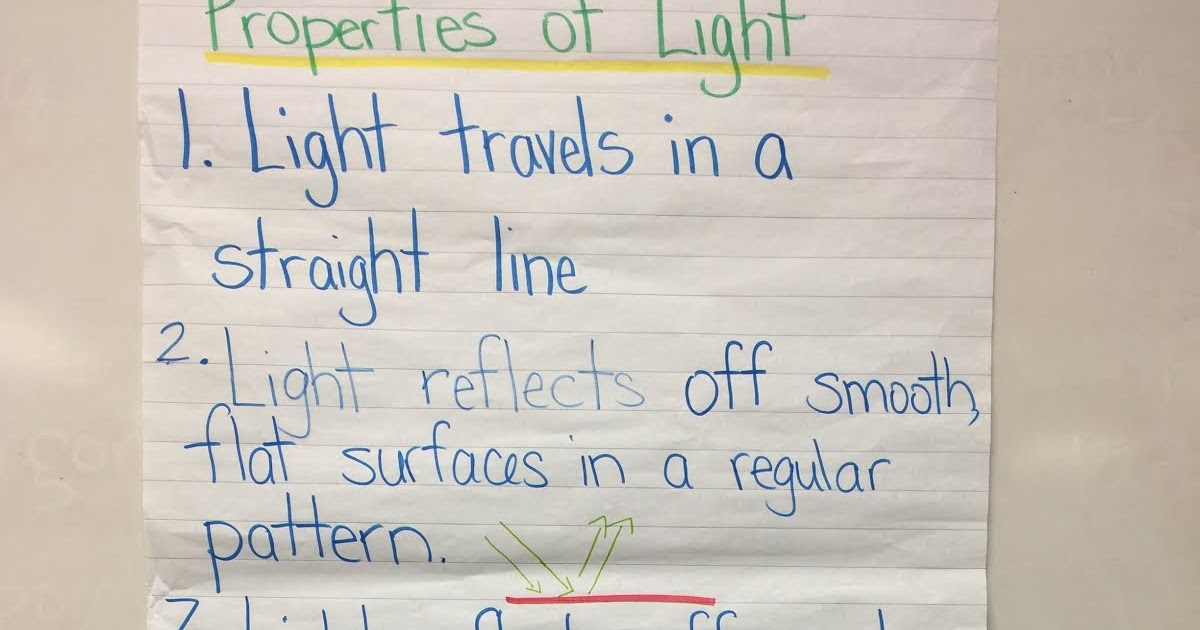 Properties of Light
1. Light travels in a
straight line
2. Light reflects off smooth,
flat surfaces in a regular
pattern.